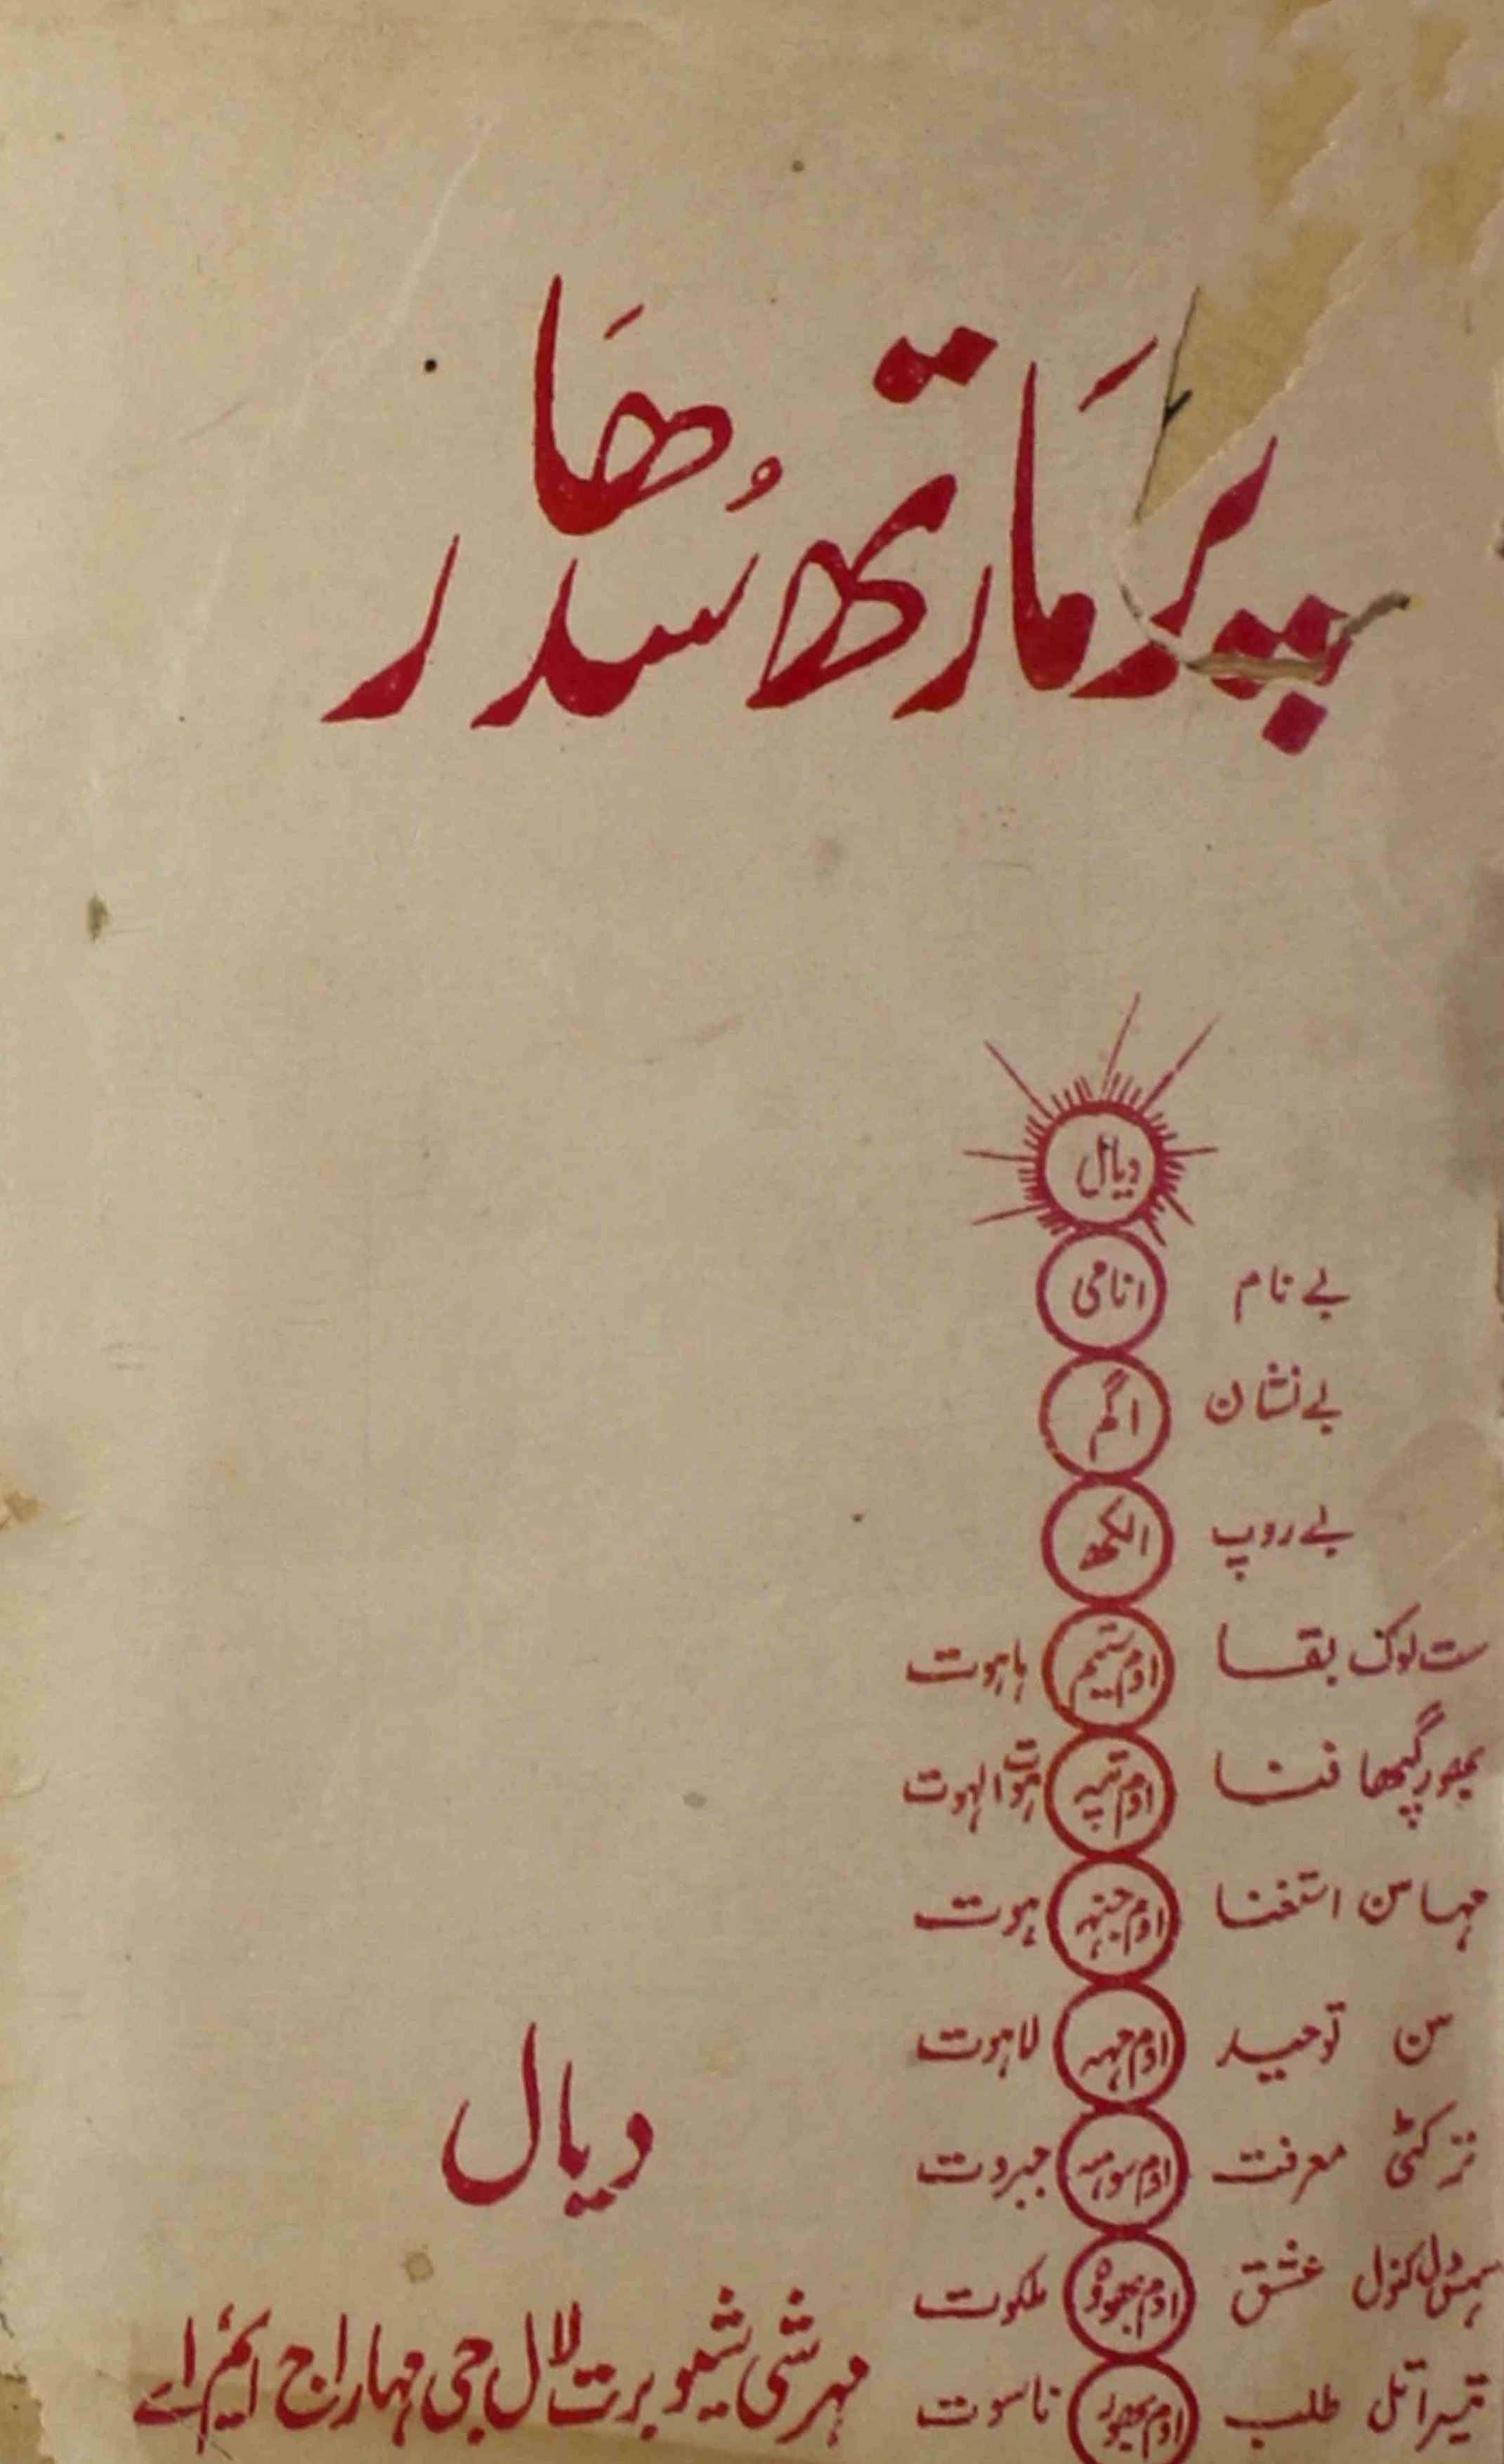 پرمارتھ سُدھار
دیال
بے نام انامی
بے نشان اگم
بے روپ الکھ
ست لوک بقا اوم ستیم ہاہوت
بھنور گپھا فنا اوم تپہ الہوت
مہا سن استغنا اوم جنہہ ہوت
سن توحید اوم مہہ لاہوت
ترکٹی معرفت اوم سوہہ جبروت
سہس دل کنول عشق اوم بھووہ ملکوت
طلب اوم بھور ناسوت
دیال
مہرشی شیو برت لال جی مہاراج ایم اے